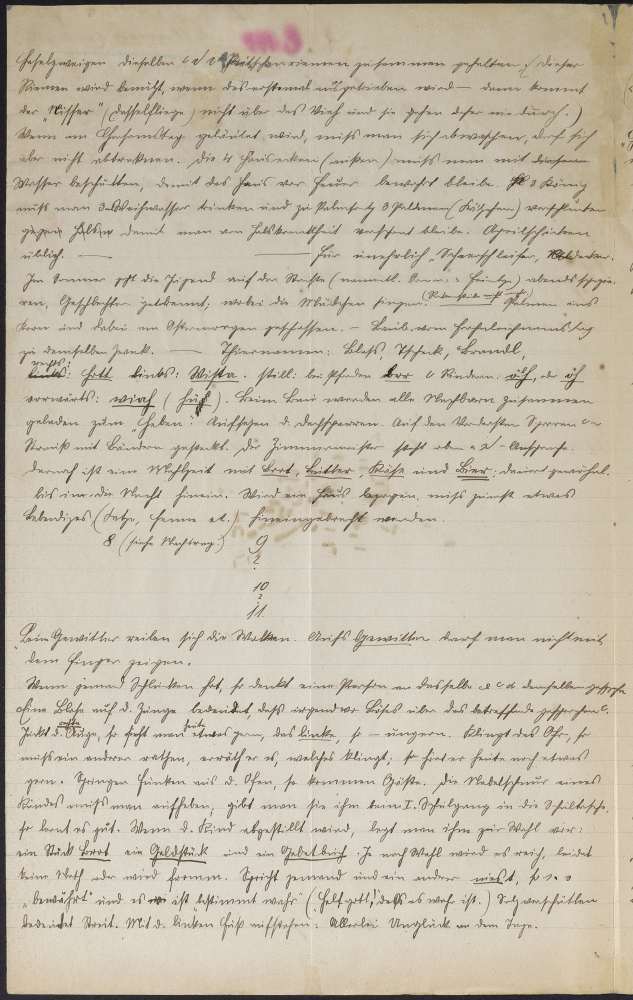 Haselzweigen dieselben u. d. Peitschenriemen zusammen gehalten (dieser
Riemen wird benützt, wenn das erstemal ausgetrieben wird — dann kommt
der "Bisser" (Dasselfliege) nicht über das Vieh und sie gehen daher nie durch.)
Wenn am Charsamstag geläutet wird, muss man sich abwaschen, darf sich
aber nicht abtrocknen. Die 4 Hausecken (außen) muss man mit diesem
Wasser beschütten, damit das Haus vor Feuer bewahrt bleibe. 3 König
muss man 3 Weihwasser trinken und zu Palmsontg 3 Palmen (Kätzchen) verschlucken
gegen Halsw damit man von Halskrankheit verschont bleibe. Aprilschicken
üblich. — — Für unehrlich Scheerschleifer,
Im Sommer geht die Jugend auf der Straße (namentl. Sonn- u. Feiertg) abends spazie-
ren, Geschlechter getrennt; wobei die Mädchen singen. Palmen ins
Korn und dabei am Ostermorgen geschossen. — Laub vom Frohnleichnamstag
zu demselben Zweck. — Thiernamen: Blass, Tscheck, Brandl,
rechts: hott links: Wista. still: bei Pferden brr b. Rindern: öh, oder öh
vorwärts: wiah (hüh). Beim Bau werden alle Nachbarn zusammen
geladen zum "Heben": Aufsetzen d. Dachsparren. Auf den Vordersten Sparren
Strauß mit Bändern gesteckt. Der Zimmermeister steht oben Ansprache
Darnach ist eine Mahlzeit mit Brot, Butter, Käse und Bier; dauert gewöhnl.
bis in die Nacht hinein. Wird ein Haus bezogen, muss zuerst etwas
Lebendiges (Katze, Henne et.) hineingebracht werden.
8 (siehe Nachtrag.) 9
?
10
?
11.
Beim Gewitter reiben sich die Wolken. Aufs Gewitter darf man nicht mit
dem Finger zeigen.
Wenn jemand Schlicken hat, so denkt eine Person an dasselbe
Eine Blase auf d. Zunge bedeutet, dass irgendwo Böses über das betreffende gesprochen.
Juckt d. rechte Auge, so sieht man heute etwas gern, das linke, so — ungern. Klingt das Ohr, so
muss ein anderer rathen, errät er es, welches klingt, so hört er heute noch etwas
gern. Springen Funken aus d. Ofen, so kommen Gäste. Die Nabelschnur eines
Kindes muss man aufheben; gibt man sie ihm beim I. Schulgang in die Schultasche,
so lernt es gut. Wenn d. Kind abgestillt wird, legt man ihm zur Wahl vor:
ein Stück Brot ein Geldstück und ein Gebetbuch. Je nach Wahl wird es reich, leidet
keine Noth oder wird fromm. Spricht jemand und ein andrer niest, so
"bewährt" und es ist "bestimmt wahr" (Helf gott! dass es wahr ist.) Salz verschütten
bedeutet Streit. Mit d. linken Fuß aufstehen: Allerlei Unglück an dem Tage.